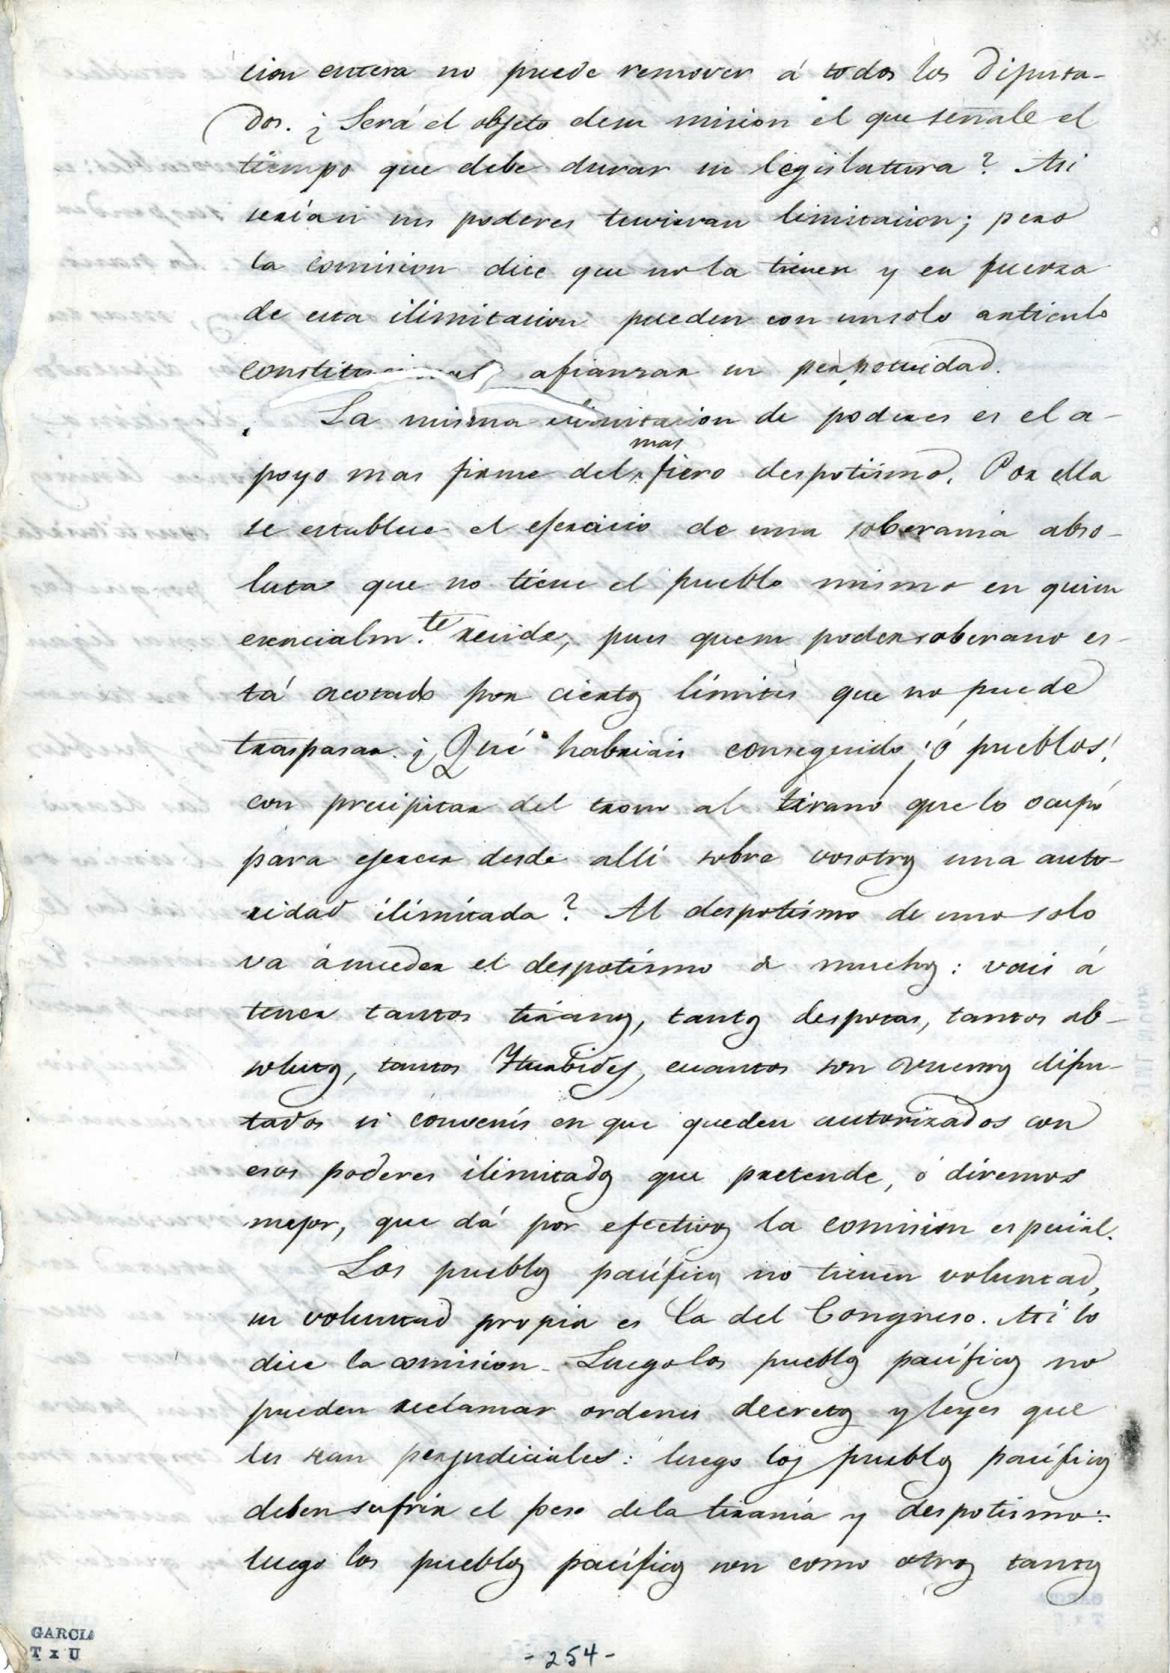 cion entera no puede remover á todos los Diputa-
dos. ¿Será el objeto desu mision el que señale el
tiempo que debe durar su legislatura? Asi
sería si sus poderes tuvieran limitacion; pero
la comision dice que no la tienen y en fuerza
de esta ilimitacion pueden con unsolo articulo
constitucional afianzar su perpetuidad.
La misma ilimitacion de poderes es el a-
poyo mas firme del mas fiero despotismo. Por ella
se establece el ejercicio de una soberania abso-
luta que no tiene el pueblo mismo en quien
esencialm.te reside, pues quem poder soberano es-
tá acotado por ciertos límites que no puede
traspasar. ¿Qué habriais conseguido ¡ó pueblos!
con precipitar del trono al tirano que lo ocupó
para ejercer desde allí sobre vosotros una auto-
ridad ilimitada? Al despotismo de uno solo
va á suceder el despotismo d muchos: vais á
tener tantos tiranos, tantos despotas, tantos ab-
solutos, tantos Yturbides, cuantos son vuestros dipu-
tados si convenís en que queden autorizados con
esos poderes ilimitados que pretende, ó diremos
mejor, que dá por efectivos la comision especial.
Los pueblos pacíficos no tienen voluntad,
su voluntad propia es la del Congreso. Así lo
dice la comision. Luego los pueblos pacíficos no
pueden reclamar ordenes decretos y leyes que
les sean perjudiciales: luego los pueblos pacíficos
deben sufrir el peso dela tirania y despotismo:
luego los pueblos pacíficos son como otros tantos
GARCIA
T x U
- 254 -